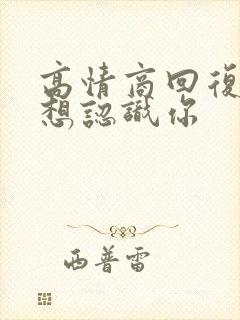 高情商回復
想認識你
西普雷